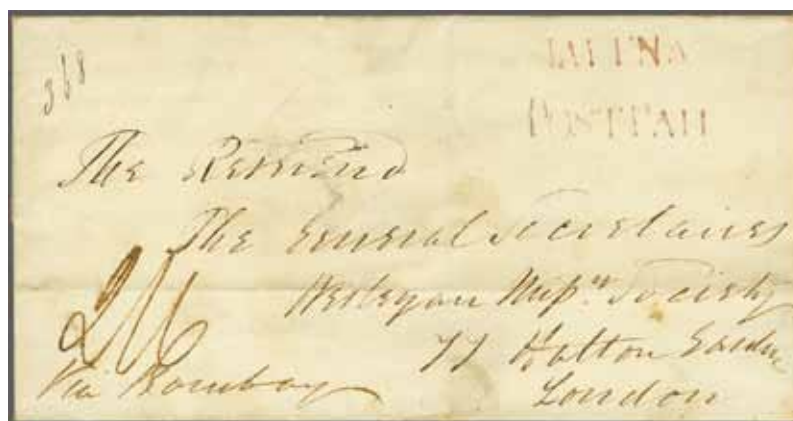 368
POSTPAID
The Reverend
The General Secretaries
Wesleyan Missn. Society
77 Hatton Garden
London
Via Bombay